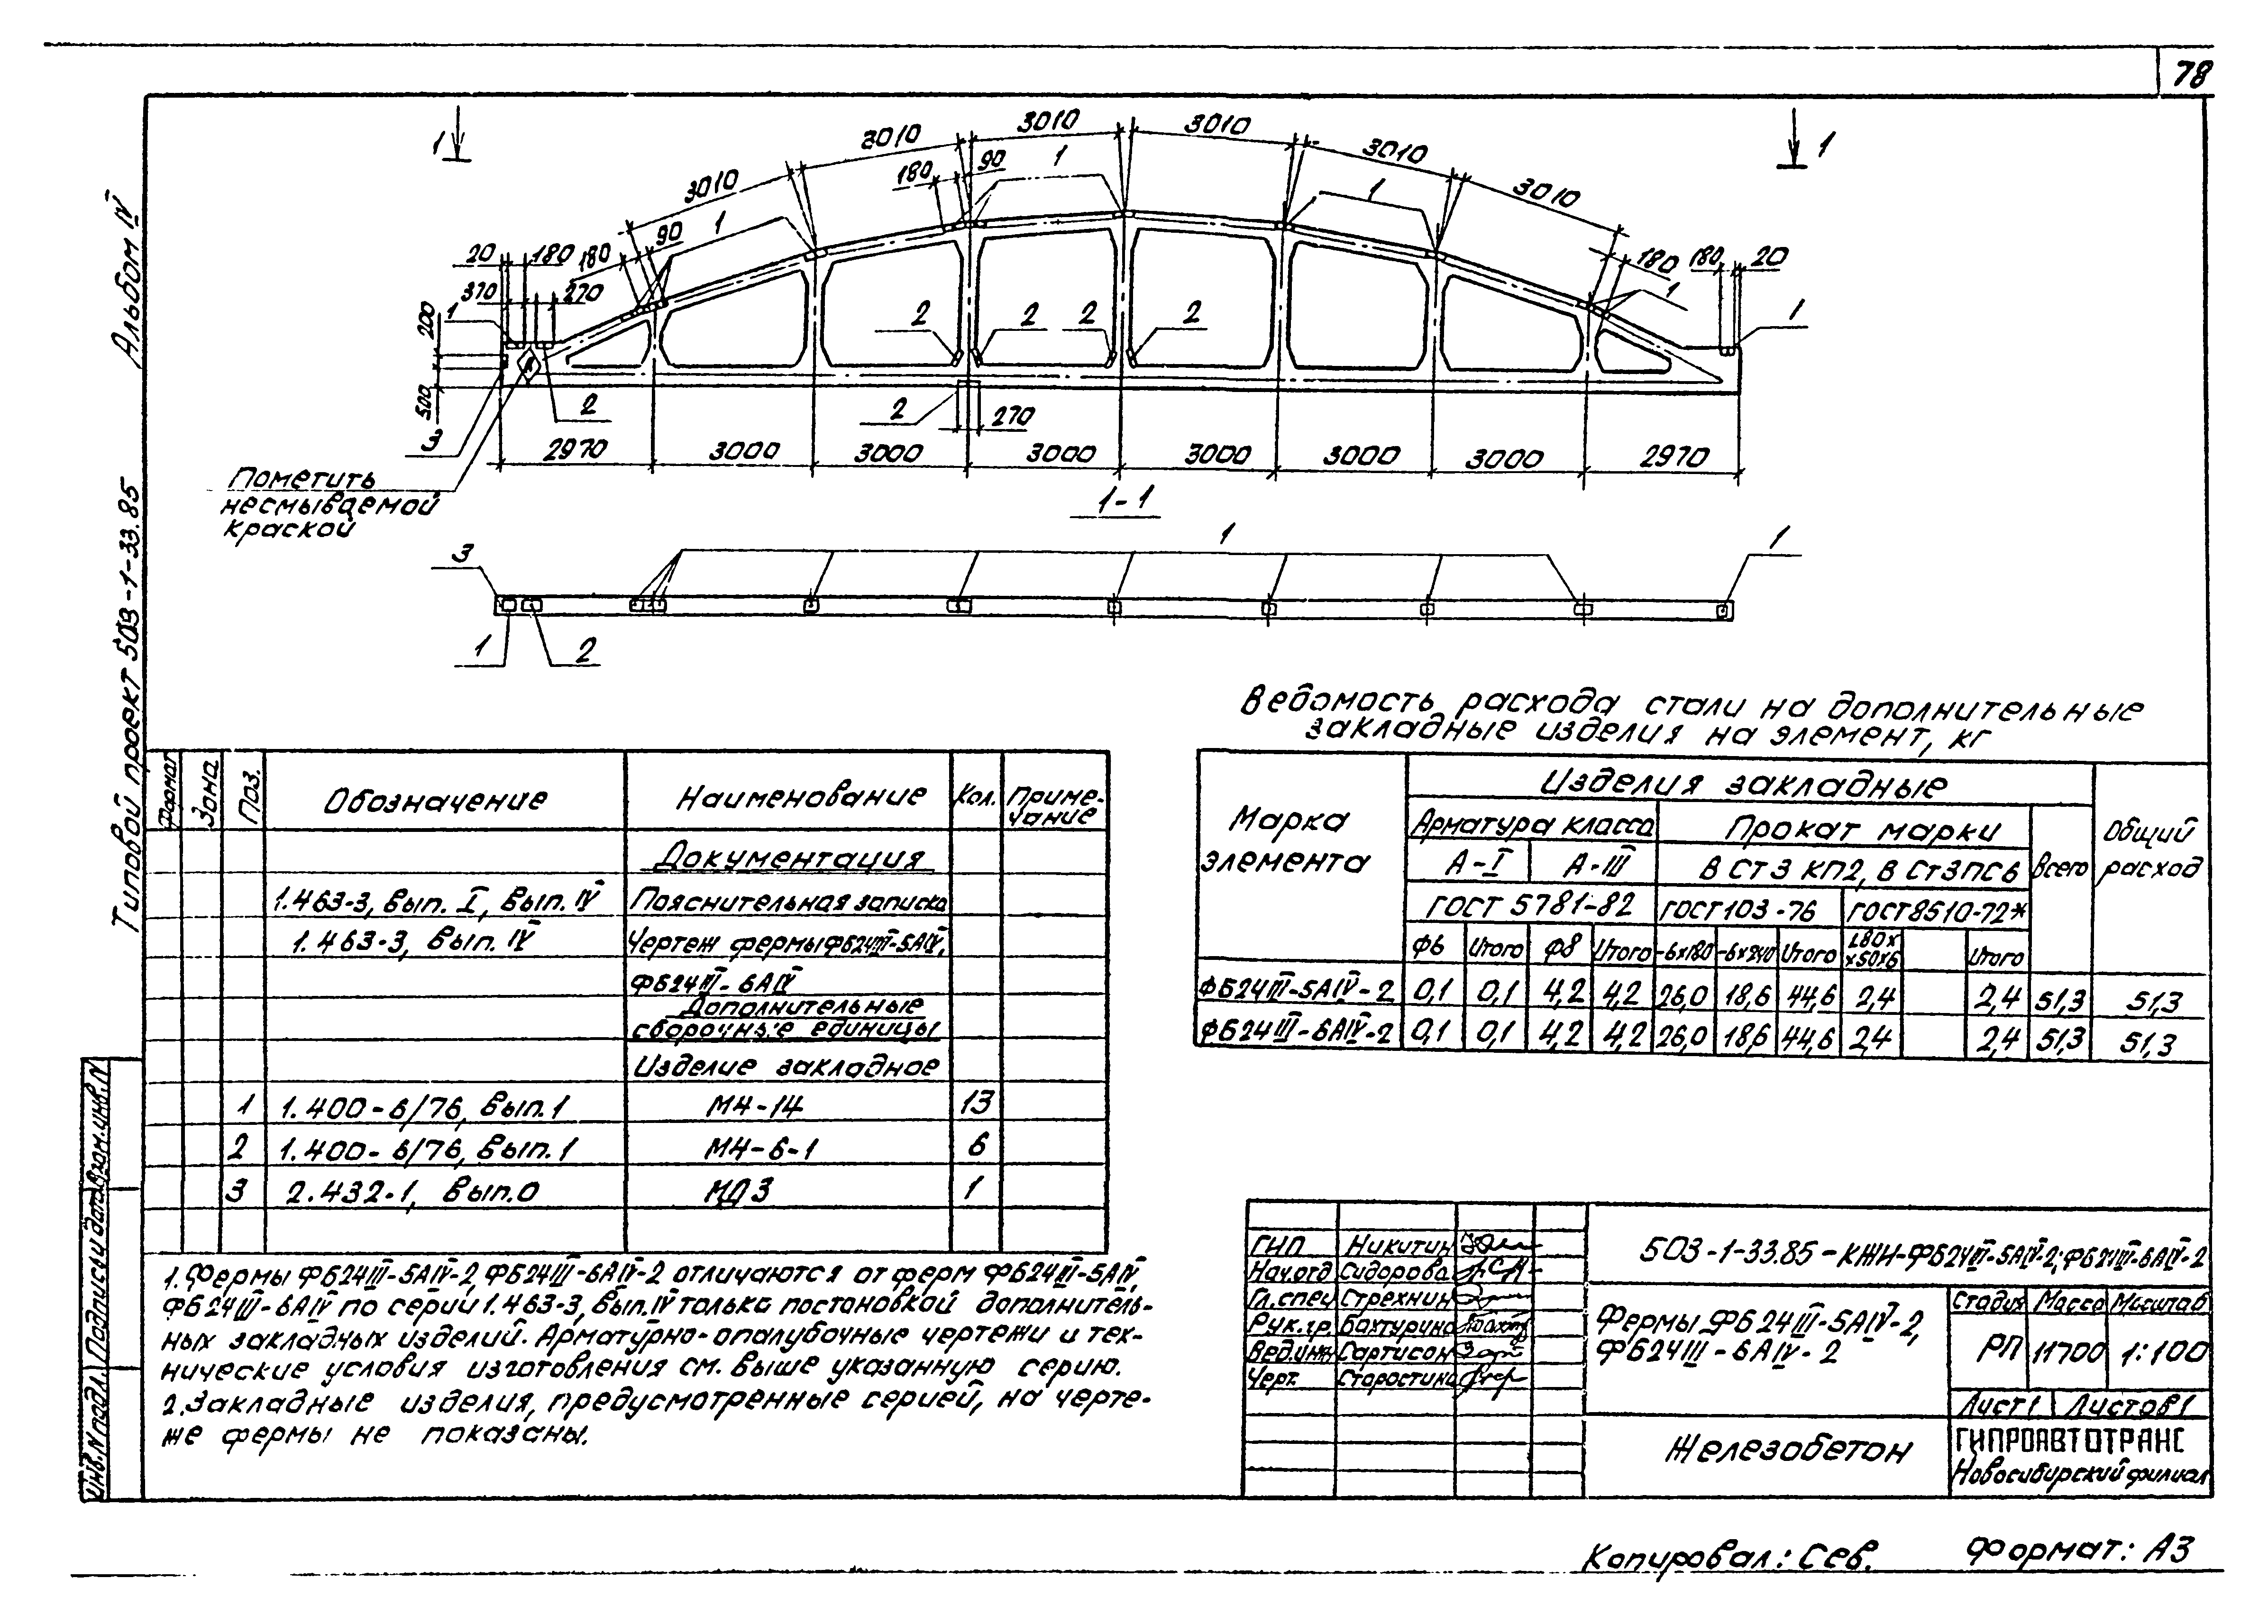 78
Альбом IV
Типовой проект 503-1-33.85
1
1
3010
3010
3010
3010
3010
3010
180
90
1
1
1
180
90
20
180
370
270
1
200
500
3
2
2
2
2
2
2
270
180
180
20
1
1
2970
3000
3000
3000
3000
3000
3000
2970
Пометить
несмываемой
краской
1-1
3
1
1
1
2
Ведомость расхода стали на дополнительные
закладные изделия на элемент, кг
Марка элемента
Изделия закладные
Общий расход
Арматура класса
Прокат марки
Всего
А-I
А-III
В Ст 3 КП2, В Ст3ПС6
ГОСТ 5781-82
ГОСТ 103-76
ГОСТ 8510-72*
Ф6
Итого
Ф8
Итого
-6х180
-6х240
Итого
L80х
х50х6
Итого
ФБ24III-5АIV-2 0,1 0,1 4,2 4,2 26,0 18,6 44,6 2,4 2,4 51,3 51,3
ФБ24III-6АIV-2 0,1 0,1 4,2 4,2 26,0 18,6 44,6 2,4 2,4 51,3 51,3
Формат
Зона
Поз.
Обозначение
Наименование
Кол.
Приме-
чание
Документация
1.463-3, вып. I, вып. IV Пояснительная записка
1.463-3, вып. IV Чертеж фермы ФБ24III-5АIV,
ФБ24III-6АIV
Дополнительные
сборочные единицы
Изделие закладное
1 1.400-6/76, вып.1 МН-14 13
2 1.400-6/76, вып.1 МН-6-1 6
3 2.432-1, вып.0 МД3 1
1. Фермы ФБ24III-5АIV-2, ФБ24III-6АIV-2 отличаются от ферм ФБ24III-5АIV,
ФБ24III-6АIV по серии 1.463-3, вып. IV только постановкой дополнитель-
ных закладных изделий. Арматурно-опалубочные чертежи и тех-
нические условия изготовления см. выше указанную серию.
2. Закладные изделия, предусмотренные серией, на черте-
же фермы не показаны.
Инв.N подл.
Подпись и дата
Взам.инв.N
ГИП Никитин
Нач.отд Сидорова
Гл.спец Стрехнин
Рук.гр. Бахтурина
Вед.инж Сартисон
Черт. Старостина
503-1-33.85-КЖИ-ФБ24III-5АIV-2; ФБ24III-6АIV-2
Фермы ФБ24III-5АIV-2,
ФБ24III-6АIV-2
Стадия Масса Масштаб
РП 11700 1:100
Лист 1 Листов 1
Железобетон
ГИПРОАВТОТРАНС
Новосибирский филиал
Копировал: Сев.
Формат: А3